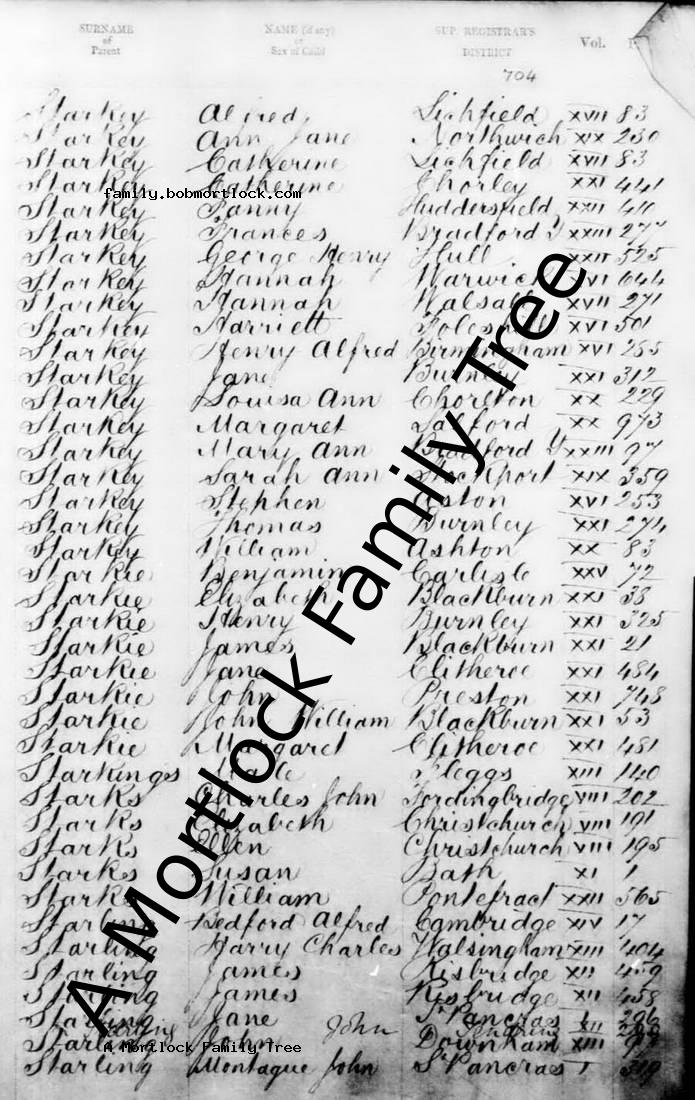 SURNAME of Parent NAME (if any) or Sex of Child SUP. REGISTRAR'S DISTRICT Vol.
704
Starkey Alfred Lichfield XVII 83
Starkey Ann Jane Northwich XIX 230
Starkey Catherine Lichfield XVII 83
Starkey Catherine Chorley XXI 441
family.bobmortlock.com
Starkey Fanny Huddersfield XXII 410
Starkey Frances Bradford Y XXIII 277
Starkey George Henry Hull XXII 525
Starkey Hannah Warwick XVI 644
Starkey Hannah Walsall XVII 271
Starkey Harriett Foleshill XVI 501
Starkey Henry Alfred Birmingham XVI 255
Starkey Jane Burnley XXI 312
Starkey Louisa Ann Chorlton XX 229
Starkey Margaret Salford XX 973
Starkey Mary Ann Bradford Y XXIII 97
Starkey Sarah Ann Stockport XIX 359
Starkey Stephen Aston XVI 253
Starkey Thomas Burnley XXI 274
Starkey William Ashton XX 83
Starkie Benjamin Carlisle XXV 72
Starkie Elizabeth Blackburn XXI 38
Starkie Henry Burnley XXI 325
Starkie James Blackburn XXI 21
Starkie Jane Clitheroe XXI 484
Starkie John Preston XXI 748
Starkie John William Blackburn XXI 53
Starkie Margaret Clitheroe XXI 481
Starkings Fleggs XIII 140
Starks Charles John Fordingbridge VIII 202
Starks Elizabeth Christchurch VIII 191
Starks Ellen Christchurch VIII 195
Starks Susan Bath XI 1
Starks William Pontefract XXII 565
Starling Bedford Alfred Cambridge XIV 17
Starling Harry Charles Walsingham XIII 404
Starling James Risbridge XII 459
Starling James Risbridge XII 458
Starling Jane St Pancras I 296
Starling John XII
Starling John Downham XIII
Starling Montague John St Pancras I 319
A Mortlock Family Tree
A Mortlock Family Tree